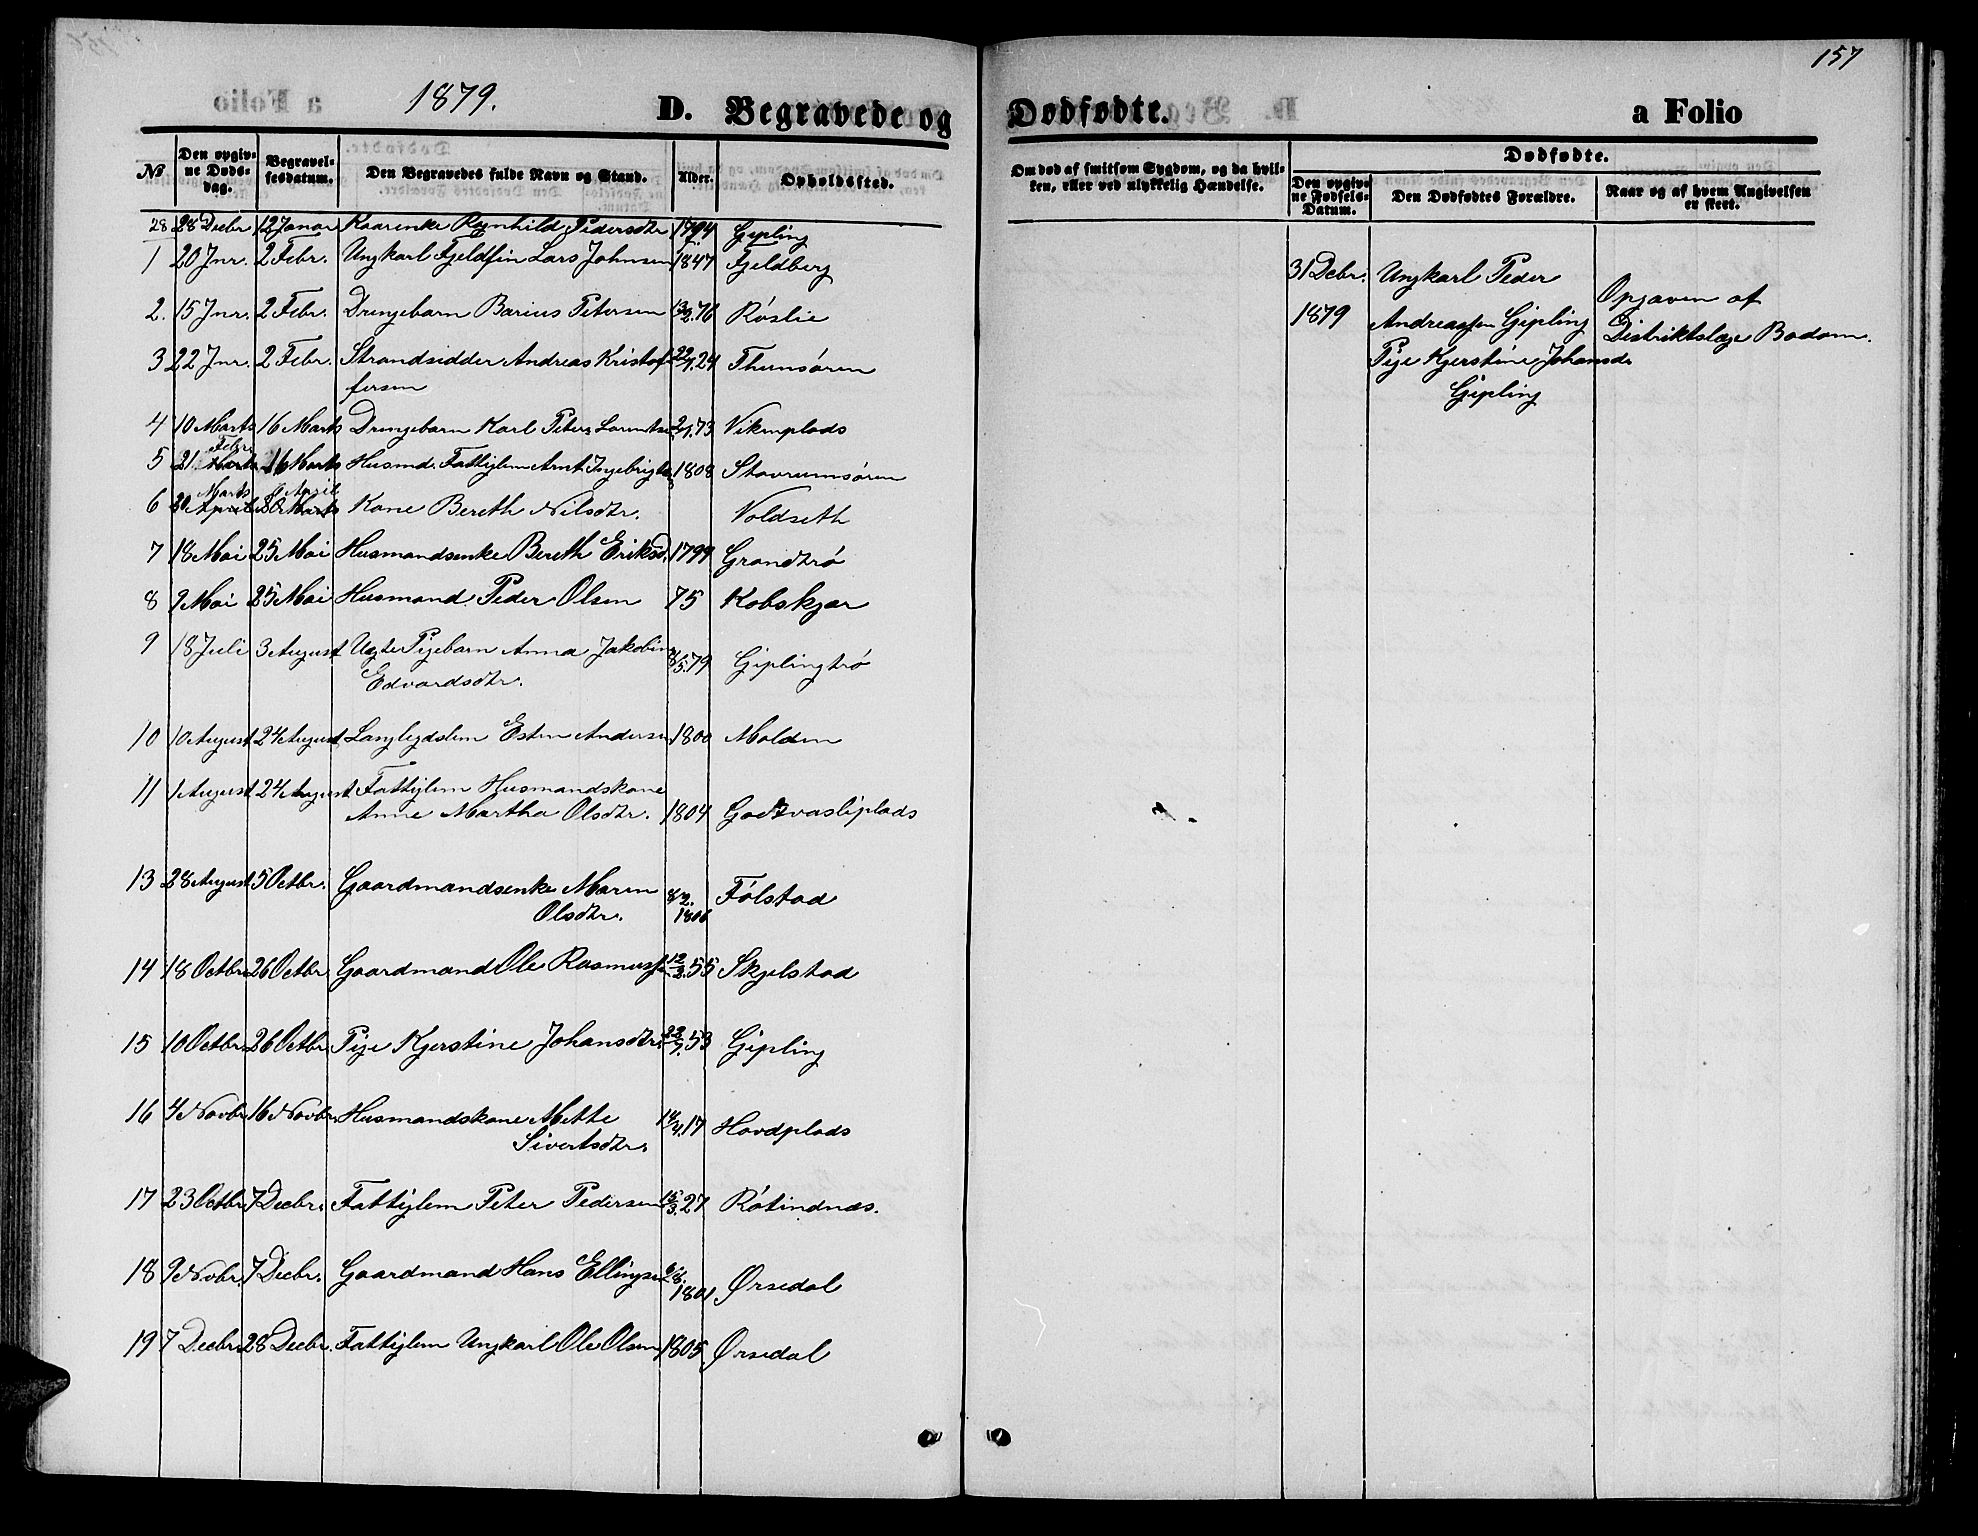 157
1879. D. Begravede og Dødfødte. a Folio
№ Den opgivne Døds-dag. Begravelsesdatum. Den Begravedes fulde Navn og Stand. Alder. Opholdssted. Om død af smitsom Sygdom, og da hvilken, eller ved ulykkelig Hændelse. Dødfødte.
Den opgivne Fødsels-Datum. Den Dødfødtes Forældre. Naar og af hvem Angivelsen er skeet.
28 28 Decbr 12 Januar Kaarenke Ragnhild Pedersdtr 1794 Gipling
1 20 Jnr. 2 Febr. Ungkarl Fjeldfin Lars Johnsen 1847 Fjeldberg
2. 15 Jnr. 2 Febr. Drengebarn Barius Petersen 13/2.76 Røslie
3 22 Jnr. 2 Febr. Strandsidder Andreas Kristof- 22/1.24 Thunsøren
fersen
4 10 Marts 16 Marts Drengebarn Karl Peter Larents 2/1.73 Vikenplads
5 21 Febr 16 Marts Husmd. Fattiglem Arnt Ingebrigts 1808 Stavrumsøren
6 30 Marts April Kone Bereth Nilsdtr. Voldseth
7 18 Mai 25 Mai Husmandsenke Bereth Eriksd. 1799 Grandtrø
8 9 Mai 25 Mai Husmand Peder Olsen 75 Kobskjær
9 18 Juli 3 August Uægte Pigebarn Anna Jakobine 8/5.79 Giplingtrø
Edvardsdtr.
10 10 August 24 August Langlegdslem Esten Andersen 1800 Molden
11 1 August 24 August Fattiglem Husmandskone
Anne Martha Olsdtr. 1804 Godtvasliplads
13 28 August 5 Octbr. Gaardmandsenke Maren 8/2. 1806 Følstad
Olsdtr.
14 18 Octbr. 26 Octbr. Gaardmand Ole Rasmussen 12/2.55 Skjelstad
15 10 Octbr. 26 Octbr. Pige Kjerstine Johansdtr. 22/7.53 Gipling
16 4 Novbr. 16 Novbr. Husmandskone Mette 14/4.17 Hovdplads
Sivertsdtr.
17 23 Octbr. 7 Decbr. Fattiglem Peter Pedersen 15/3.27 Røtindnæs.
18 9 Novbr. 7 Decbr. Gaardmand Hans Ellingsen 6/8. 1801 Ørsedal
19 7 Decbr. 28 Decbr. Fattiglem Ungkarl Ole Olsen 1805 Ørsedal
31 Debr. Ungkarl Peder Opgaven af
1879 Andreassen Gipling Distriktslæge Bodom.
Pige Kjerstine Johansd.
Gipling